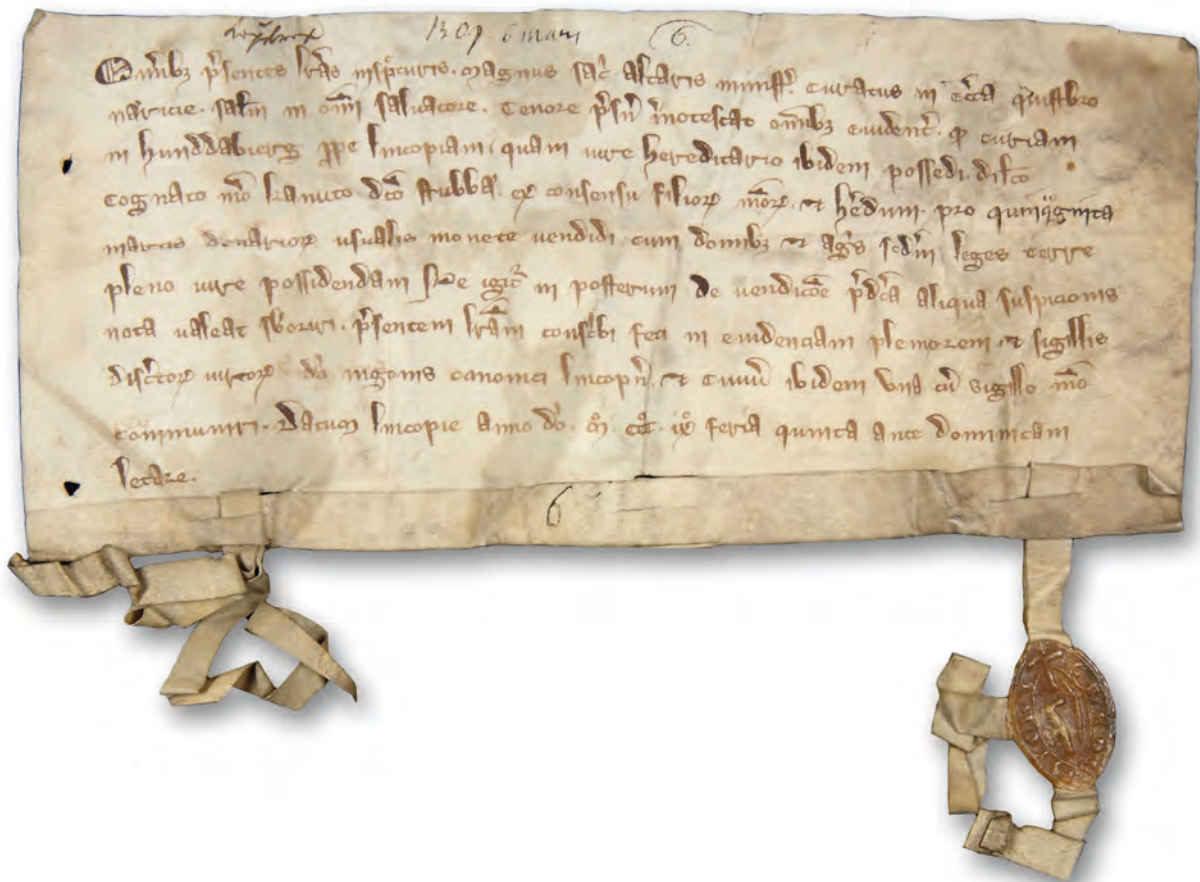 1309. 6 mars 6.
Omībꝫ p̄sentes lr̄as inspc̄turis. magnus sac̄ altaris minist̄. curatus in ecc̄a quistbro
næricie. salm̄ in om̄i saluatore. Tenore p̄sn̄ īnotescat om̄ibꝫ euident̄. ꝙ curiam
in hunddabierg ꝓpe lincopiam, quam iure hereditario ibidem possedi. dilc̄o
cognato mō kanuto dc̄o stubba. ex consensu filioꝝ meoꝝ. ⁊ hēdum. pro quinq̄ginta
marcis denarioꝝ usualis monete uendidi cum domibꝫ ⁊ ag̃s sc̄dm leges terre
pleno iure possidendam Ne igit̄ in posterum de uendic̄oe p̄dc̄a aliqua suspicionis
nota ualeat sb̄oriri. p̄sentem lr̄am consc̄bi feci in euidenciam pleniorem. ⁊ sigillis
disc̄toꝝ uiroꝝ dn̄i ingonis canonici lincopn̄. ⁊ ciuiū ibidem vna cū sigillo mō
com̄uniri. Datum lincopie anno dō. m̊. ccc̊. ix̊ feria quinta ante dominicam
letare.
6